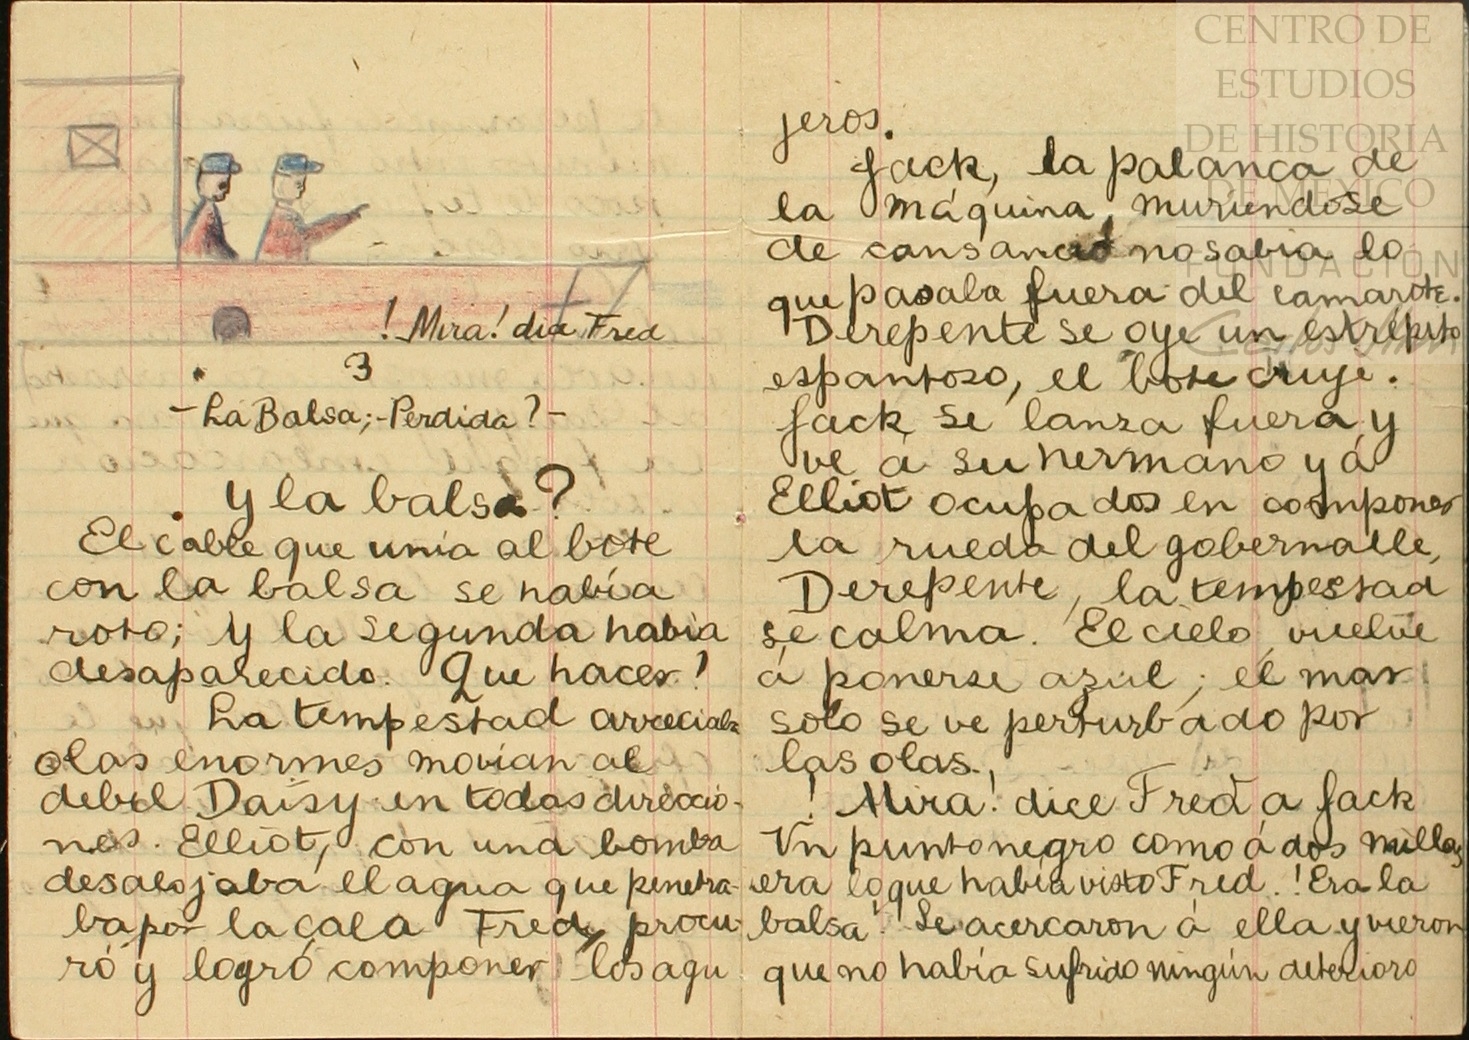 ! Mira! dice Fred
3
- La Balsa; - Perdida? -
Y la balsa?
El cable que unía al bote
con la balsa se había
roto; y la segunda había
desaparecido. Que hacer!
La tempestad arreciaba
olas enormes movían al
debil Daisy en todas direccio-
nes. Elliot, con una bomba
desalojaba el agua que penetra-
ba por la cala Fred, procu-
ró y logró componer los agu
jeros.
Jack, la palanca de
la máquina, muriendose
de cansancio no sabia lo
que pasaba fuera del camarote.
Derepente se oye un estrépito
espantoso, el bote cruje.
Jack se lanza fuera y
ve á su hermano y á
Elliot ocupados en componer
la rueda del gobernalle,
Derepente, la tempestad
se calma. El cielo vuelve
á ponerse azul; el mar
solo se ve perturbado por
las olas.
! Mira! dice Fred a Jack
Un punto negro como á dos millas
era lo que había visto Fred. ! Era la
balsa! Se acercaron á ella y vieron
que no había sufrido ningún deterioro
CENTRO DE
ESTUDIOS
DE HISTORIA
DE MÉXICO
FUNDACIÓN
Carlos Slim